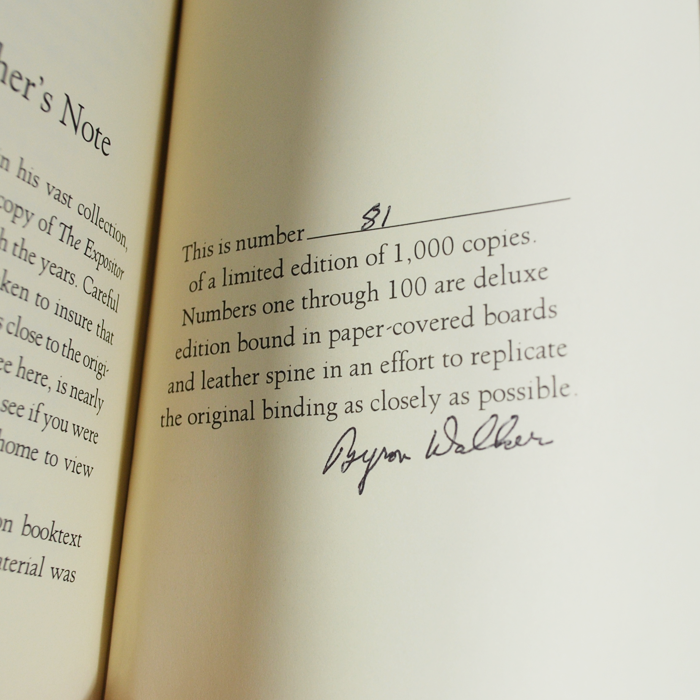 her's Note
n his vast collection,
copy of The Expositor
h the years. Careful
ken to insure that
s close to the origi-
ee here, is nearly
see if you were
home to view
on booktext
aterial was
This is number 81
of a limited edition of 1,000 copies.
Numbers one through 100 are deluxe
edition bound in paper-covered boards
and leather spine in an effort to replicate
the original binding as closely as possible.
Byron Walker